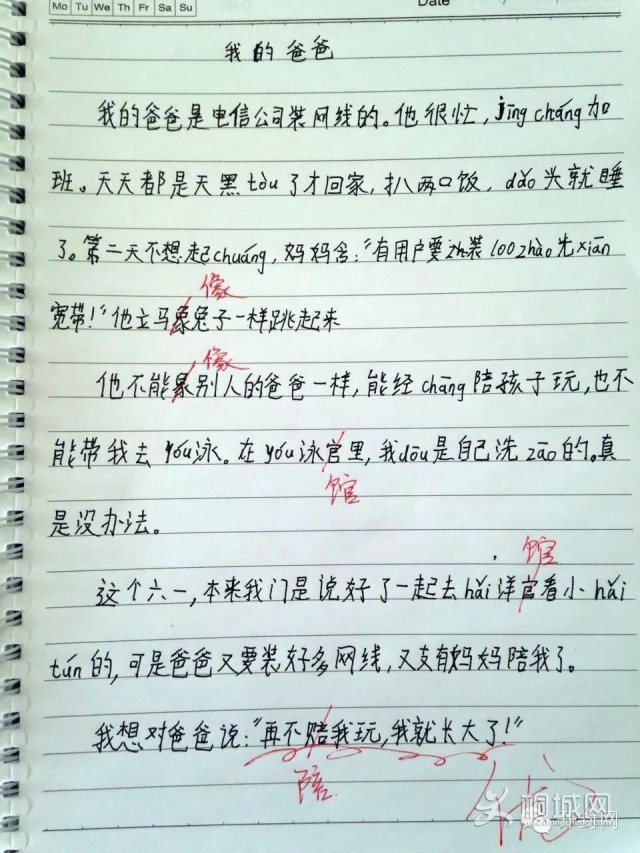 Mo Tu We Th Fr Sa Su
Date
我的爸爸
我的爸爸是电信公司装网线的。他很忙，jīng cháng加
班。天天都是天黑tòu了才回家，扒两口饭，dǎo头就睡
了。第二天不想起chuáng，妈妈含："有用户要zh装100zhào光xiān
像
宽带！"他立马象兔子一样跳起来
像
他不能象别人的爸爸一样，能经chāng陪孩子玩，也不
能带我去yóu泳。在yóu泳官里，我dōu是自己洗zāo的。真
馆
是没办法。
馆
这个六一，本来我门是说好了一起去hǎi洋官看小hǎi
tún的，可是爸爸又要装好多网线，又支有妈妈陪我了。
我想对爸爸说："再不赔我玩，我就长大了！"
陪
桐城网